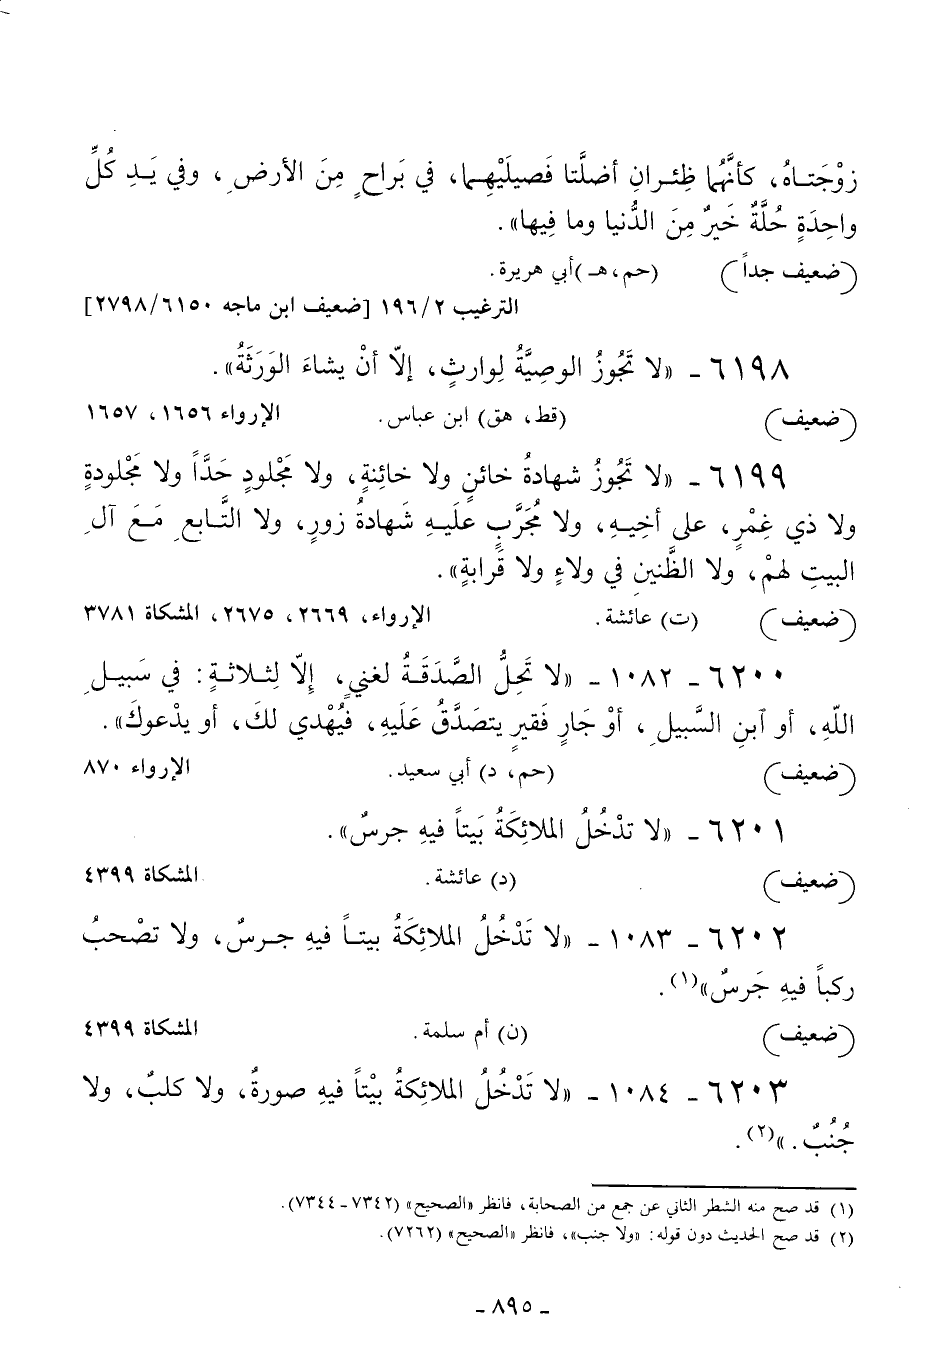 زوْجَتـاهُ، كأنَّهُما ظِئـرانِ أضلَّتا فَصيلَيْهِـما، في بَراحٍ مِنَ الأرضِ، وفي يَـدِ كُلِّ
واحِدَةٍ حُلَّةٌ خَيرٌ مِنَ الدُّنيا وما فِيها».
(ضعيف جداً) (حم، هـ) أبي هريرة.
الترغيب ١٩٦/٢ [ضعيف ابن ماجه ٢٧٩٨/٦١٥٠]
٦١٩٨ ـ «لا تَجُوزُ الوصِيَّةُ لِوارِثٍ، إلاّ أنْ يشاءَ الوَرَثَةُ».
(ضعيف) (قط، هق) ابن عباس. الإرواء ١٦٥٦، ١٦٥٧
٦١٩٩ ـ «لا تَجُوزُ شهادةُ خائنٍ ولا خائِنةٍ، ولا مَجْلودٍ حَدَّاً ولا مَجْلودةٍ
ولا ذي غِمْرٍ، على أخِيـهِ، ولا مُجَرَّبٍ علَيـهِ شَهادةُ زورٍ، ولا التَّابعِ مَـعَ آلِ
البيتِ لهمْ، ولا الظَّنينِ في ولاءٍ ولا قَرابةٍ».
(ضعيف) (ت) عائشة. الإرواء، ٢٦٦٩، ٢٦٧٥، المشكاة ٣٧٨١
٦٢٠٠ ـ ١٠٨٢ ـ «لا تَحِلُّ الصَّدَقَـةُ لغنيٍ، إلاّ لِثـلاثـةٍ: في سَبيـلِ
اللّهِ، أو ٱبنِ السَّبيلِ، أوْ جَارٍ فَقيرٍ يتصَدَّقُ عَلَيهِ، فيُهْدي لكَ، أو يدْعوكَ».
(ضعيف) (حم، د) أبي سعيد. الإرواء ٨٧٠
٦٢٠١ ـ «لا تدْخُلُ الملائِكَةُ بَيتاً فيهِ جرسٌ».
(ضعيف) (د) عائشة. المشكاة ٤٣٩٩
٦٢٠٢ ـ ١٠٨٣ ـ «لا تَدْخُلُ الملائِكَةُ بيتـاً فيهِ جـرسٌ، ولا تصْحبُ
ركباً فيهِ جَرسٌ»(١).
(ضعيف) (ن) أم سلمة. المشكاة ٤٣٩٩
٦٢٠٣ ـ ١٠٨٤ ـ «لا تَدْخُلُ الملائِكةُ بيْتاً فيهِ صورةٌ، ولا كلبٌ، ولا
جُنُبٌ.»(٢).
(١) قد صح منه الشطر الثاني عن جمع من الصحابة، فانظر «الصحيح» (٧٣٤٢ ـ ٧٣٤٤).
(٢) قد صح الحديث دون قوله: «ولا جنب»، فانظر «الصحيح» (٧٢٦٢).
ـ ٨٩٥ ـ